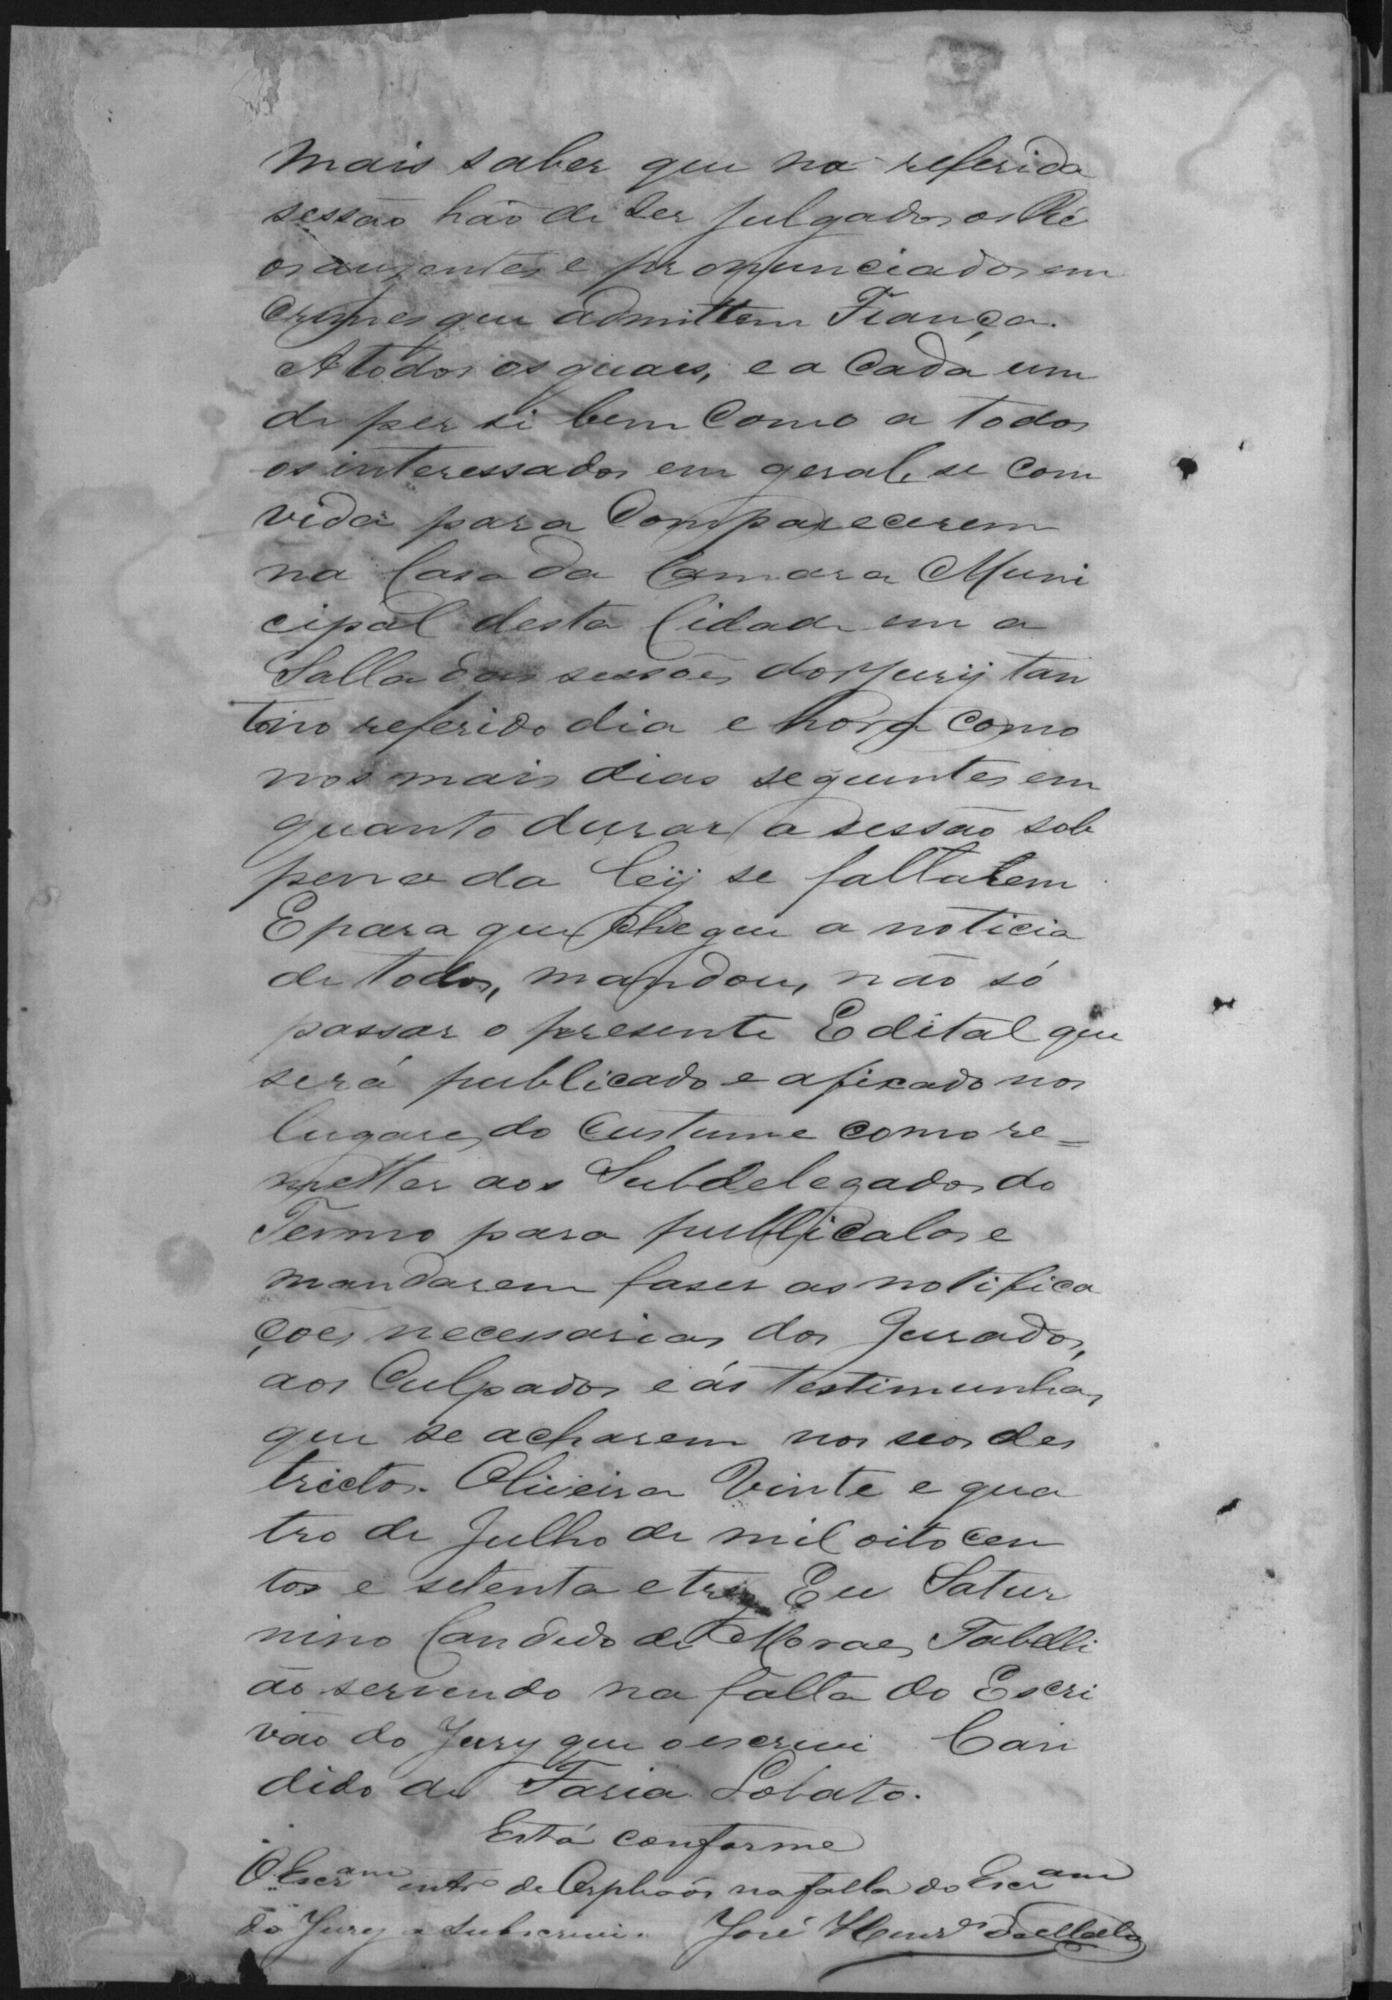 mais saber que na referida
sessão hão de ser julgados os Ré
os auzentes e pronunciados em
crimes que admittem Fiança.
A todos os quaes, e a cada um
de per si bem como a todos
os interessados em geral, se com
vida para comparecerem
na Casa da Camara Muni
cipal desta Cidade em a
Salla das sessões do Jury tan
to no referido dia e hora como
nos mais dias seguintes em
quanto durar a sessão sob
pena da Ley se faltarem
E para que chegue a noticia
de todos, mandou, não só
passar o presente Edital que
será publicado e afixado nos
lugares do custume como re=
metter aos Subdelegados do
Termo para publicalos e
mandarem faser as notifica
ções necessarias dos Jurados,
aos Culpados e ás testimunhas
que se acharem nos seos des
trictos. Oliveira Vinte e qua
tro de Julho de mil oito cen
tos e setenta e tres Eu Satur
nino Candido de Moraes Tabelli
ão servendo na falta do Escri
vão do Jury que o escrevi Can
dido de Faria Lobato.
Está conforme
O Escr.am de Orphãos na falta do Escr.am
do Jury o subscrevi. José